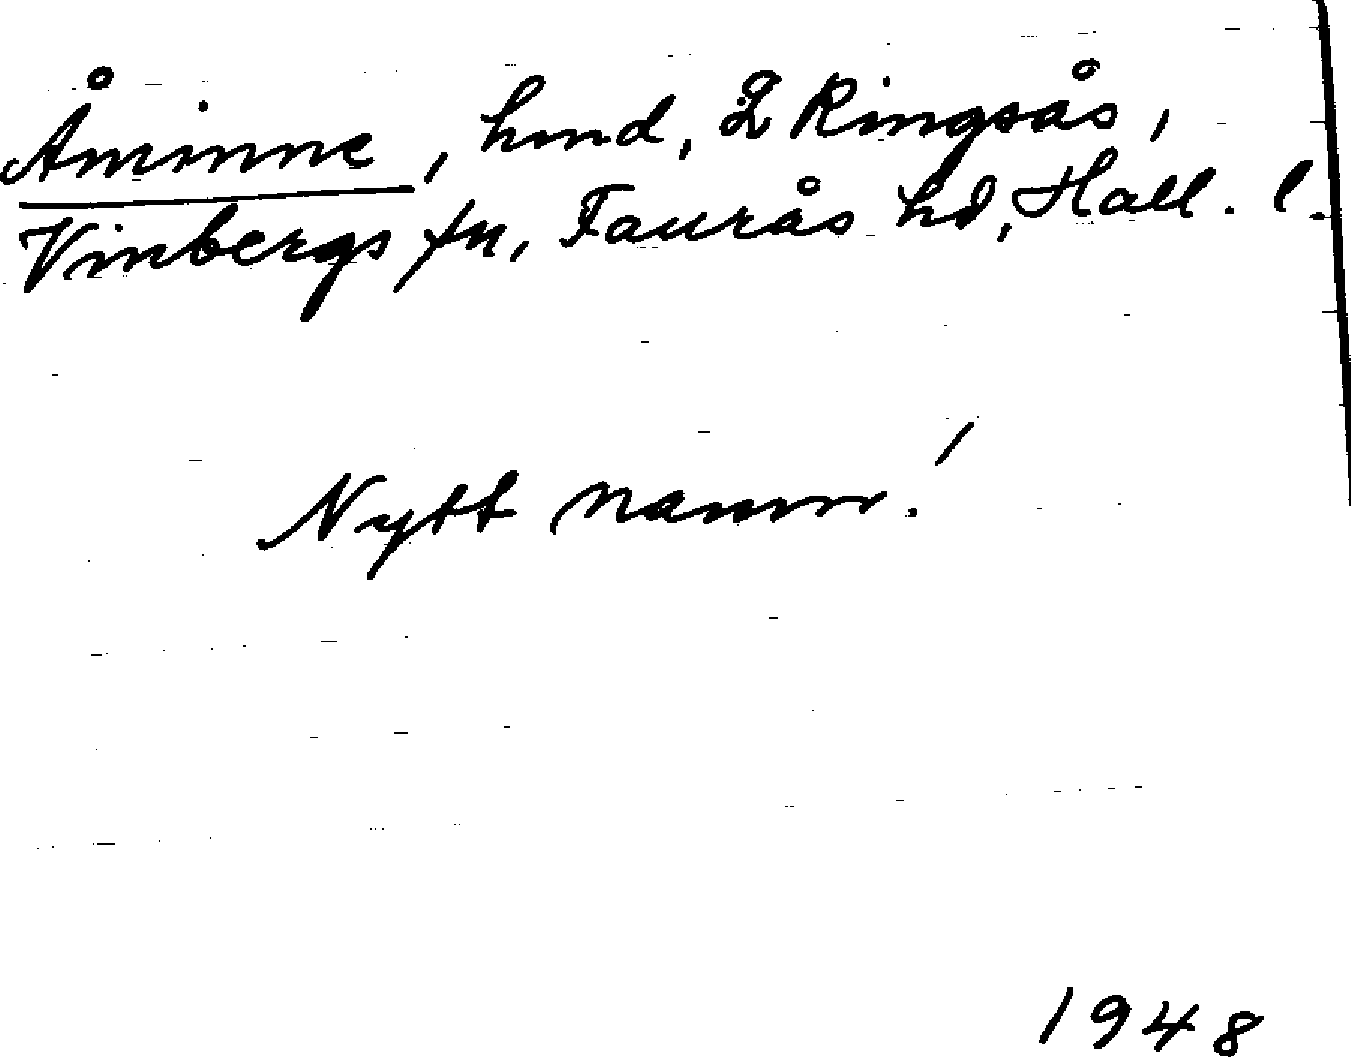 Åminne, hmd, 2 Ringsås,
Vinbergs sn, Faurås hd, Hall. l.
Nytt namn!
1948